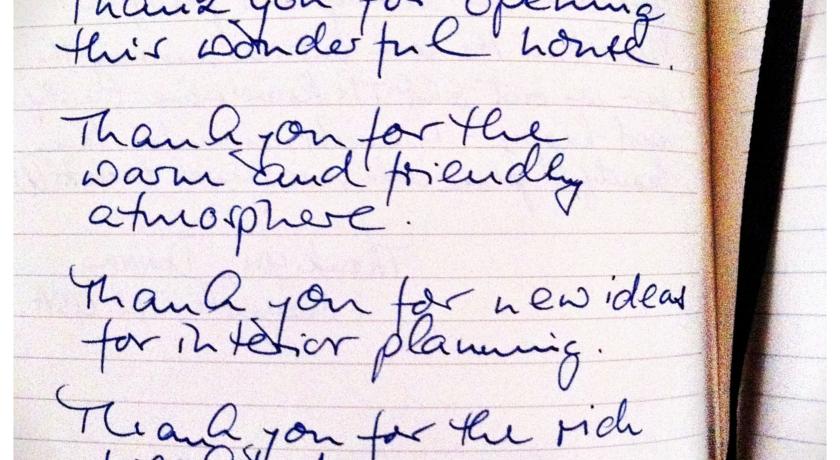 Thank you for opening
this wonderful house.
Thank you for the
warm and friendly
atmosphere.
Thank you for new ideas
for interior planning.
Thank you for the rich